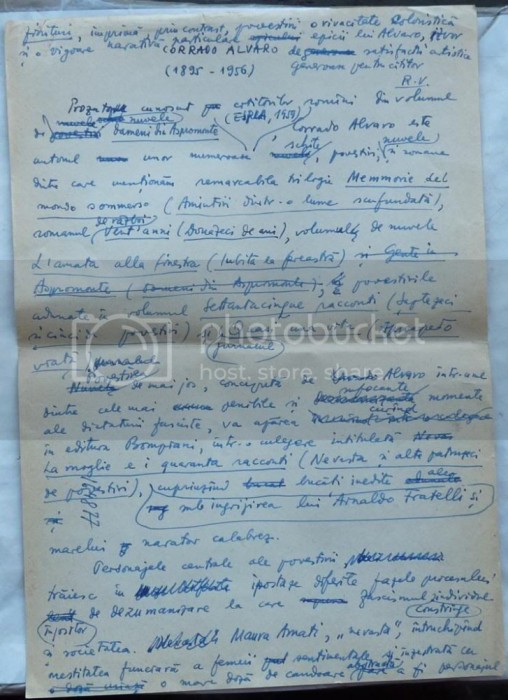 finituri, imprimă prin contrast, povestirii o vivacitate coloristică
și o vigoare narativă particulare epicii lui Alvaro, izvor
CORRADO ALVARO de satisfacții artistice
(1895 - 1956) generoase pentru cititor
R.V.
Prozator cunoscut cititorilor români din volumul
de nuvele Oameni din Aspromonte (ESPLA, 1959) Corrado Alvaro este
autorul unor numeroase schițe, povestiri, nuvele și romane
dintre care menționăm remarcabila trilogie Memmorie del
mondo sommerso (Amintiri dintr-o lume scufundată),
romanul Vent'anni (Douăzeci de ani), de război volumele de nuvele
L'amata alla finestra (Iubita la fereastră) și Gente in
Aspromonte (Oameni din Aspromonte), povestirile
adunate în volumul Settantacinque racconti (Șaptezeci
și cinci de povestiri) și
viață jurnalul
Nuvela Povestirea de mai jos, concepută de Alvaro într-unul
dintre cele mai penibile și sufocante momente
ale dictaturii fasciste, va apărea curînd
în editura Bompiani, într-o culegere intitulată
La moglie e i quaranta racconti (Nevasta și alte patruzeci
de povestiri), cuprinzînd bucăți inedite ale
sub îngrijirea lui Arnaldo Fratelli și
marelui narator calabrez.
Personajele centrale ale povestirii
trăiesc în ipostaze diferite fazele procesului
de dezumanizare la care fascismul
constrînge
și societatea. Maura Amati, "nevasta", întruchipînd
onestitatea funciară a femeii sentimentale și
o mare doză de candoare a fi personajul
photobucket
host. store. share.